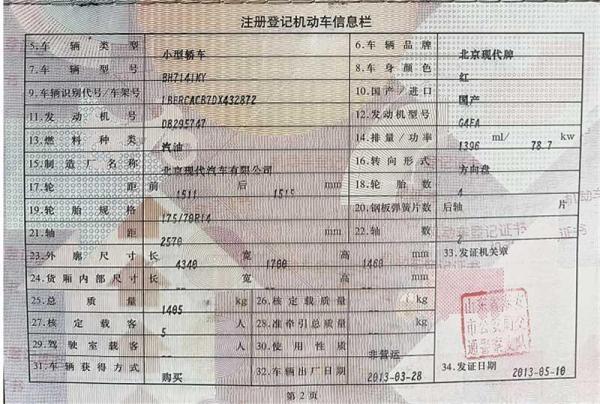 注册登记机动车信息栏
5.车辆类型 小型轿车 6.车辆品牌 北京现代牌
7.车辆型号 BH7141MY 8.车身颜色 红
9.车辆识别代号/车架号 LBERCACB7DX432872 10.国产/进口 国产
11.发动机号 DB295747 12.发动机型号 G4FA
13.燃料种类 汽油 14.排量/功率 1396 ml/ 78.7 kw
15.制造厂名称 北京现代汽车有限公司 16.转向形式 方向盘
17.轮距 前 1511 后 mm 18.轮胎数 4
19.轮胎规格 175/70R14 20.钢板弹簧片数 后轴 片
21.轴距 2570 mm 22.轴数 2
23.外廓尺寸 长 4340 宽 1700 高 1460 mm 33.发证机关章
24.货厢内部尺寸 长 宽 高 mm
25.总质量 1405 kg 26.核定载质量 kg
27.核定载客 5 人 28.准牵引总质量 kg
29.驾驶室载客 人 30.使用性质 非营运
31.车辆获得方式 购买 32.车辆出厂日期 2013-03-28 34.发证日期 2013-05-10
第2页